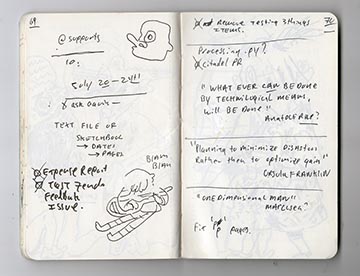 69
@supports
10:
July 20-24!!
x ask Davis—
TEXT FILE OR
SKETCHBOOK
→ DATES
→ PAGES
Expense Report
TEST Zendo
Feedback
Issue.
BLAM
BLAM
70
Remove Testing 3things
Items.
Processing.py?
citadel PR
"WHAT EVER CAN BE DONE
BY TECHNILOGICAL MEANS,
Will BE DONE"
Anatole
"Planning to minimize Disasters
Rather then to optimize gain"
URSULA FRANKLIN
"ONE DIMENSIONAL MAN"
Fix "P" pages.